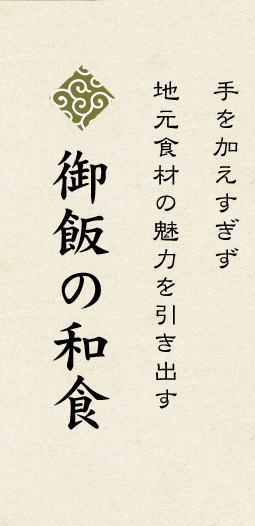 手を加えすぎず
地元食材の魅力を引き出す
御飯の和食